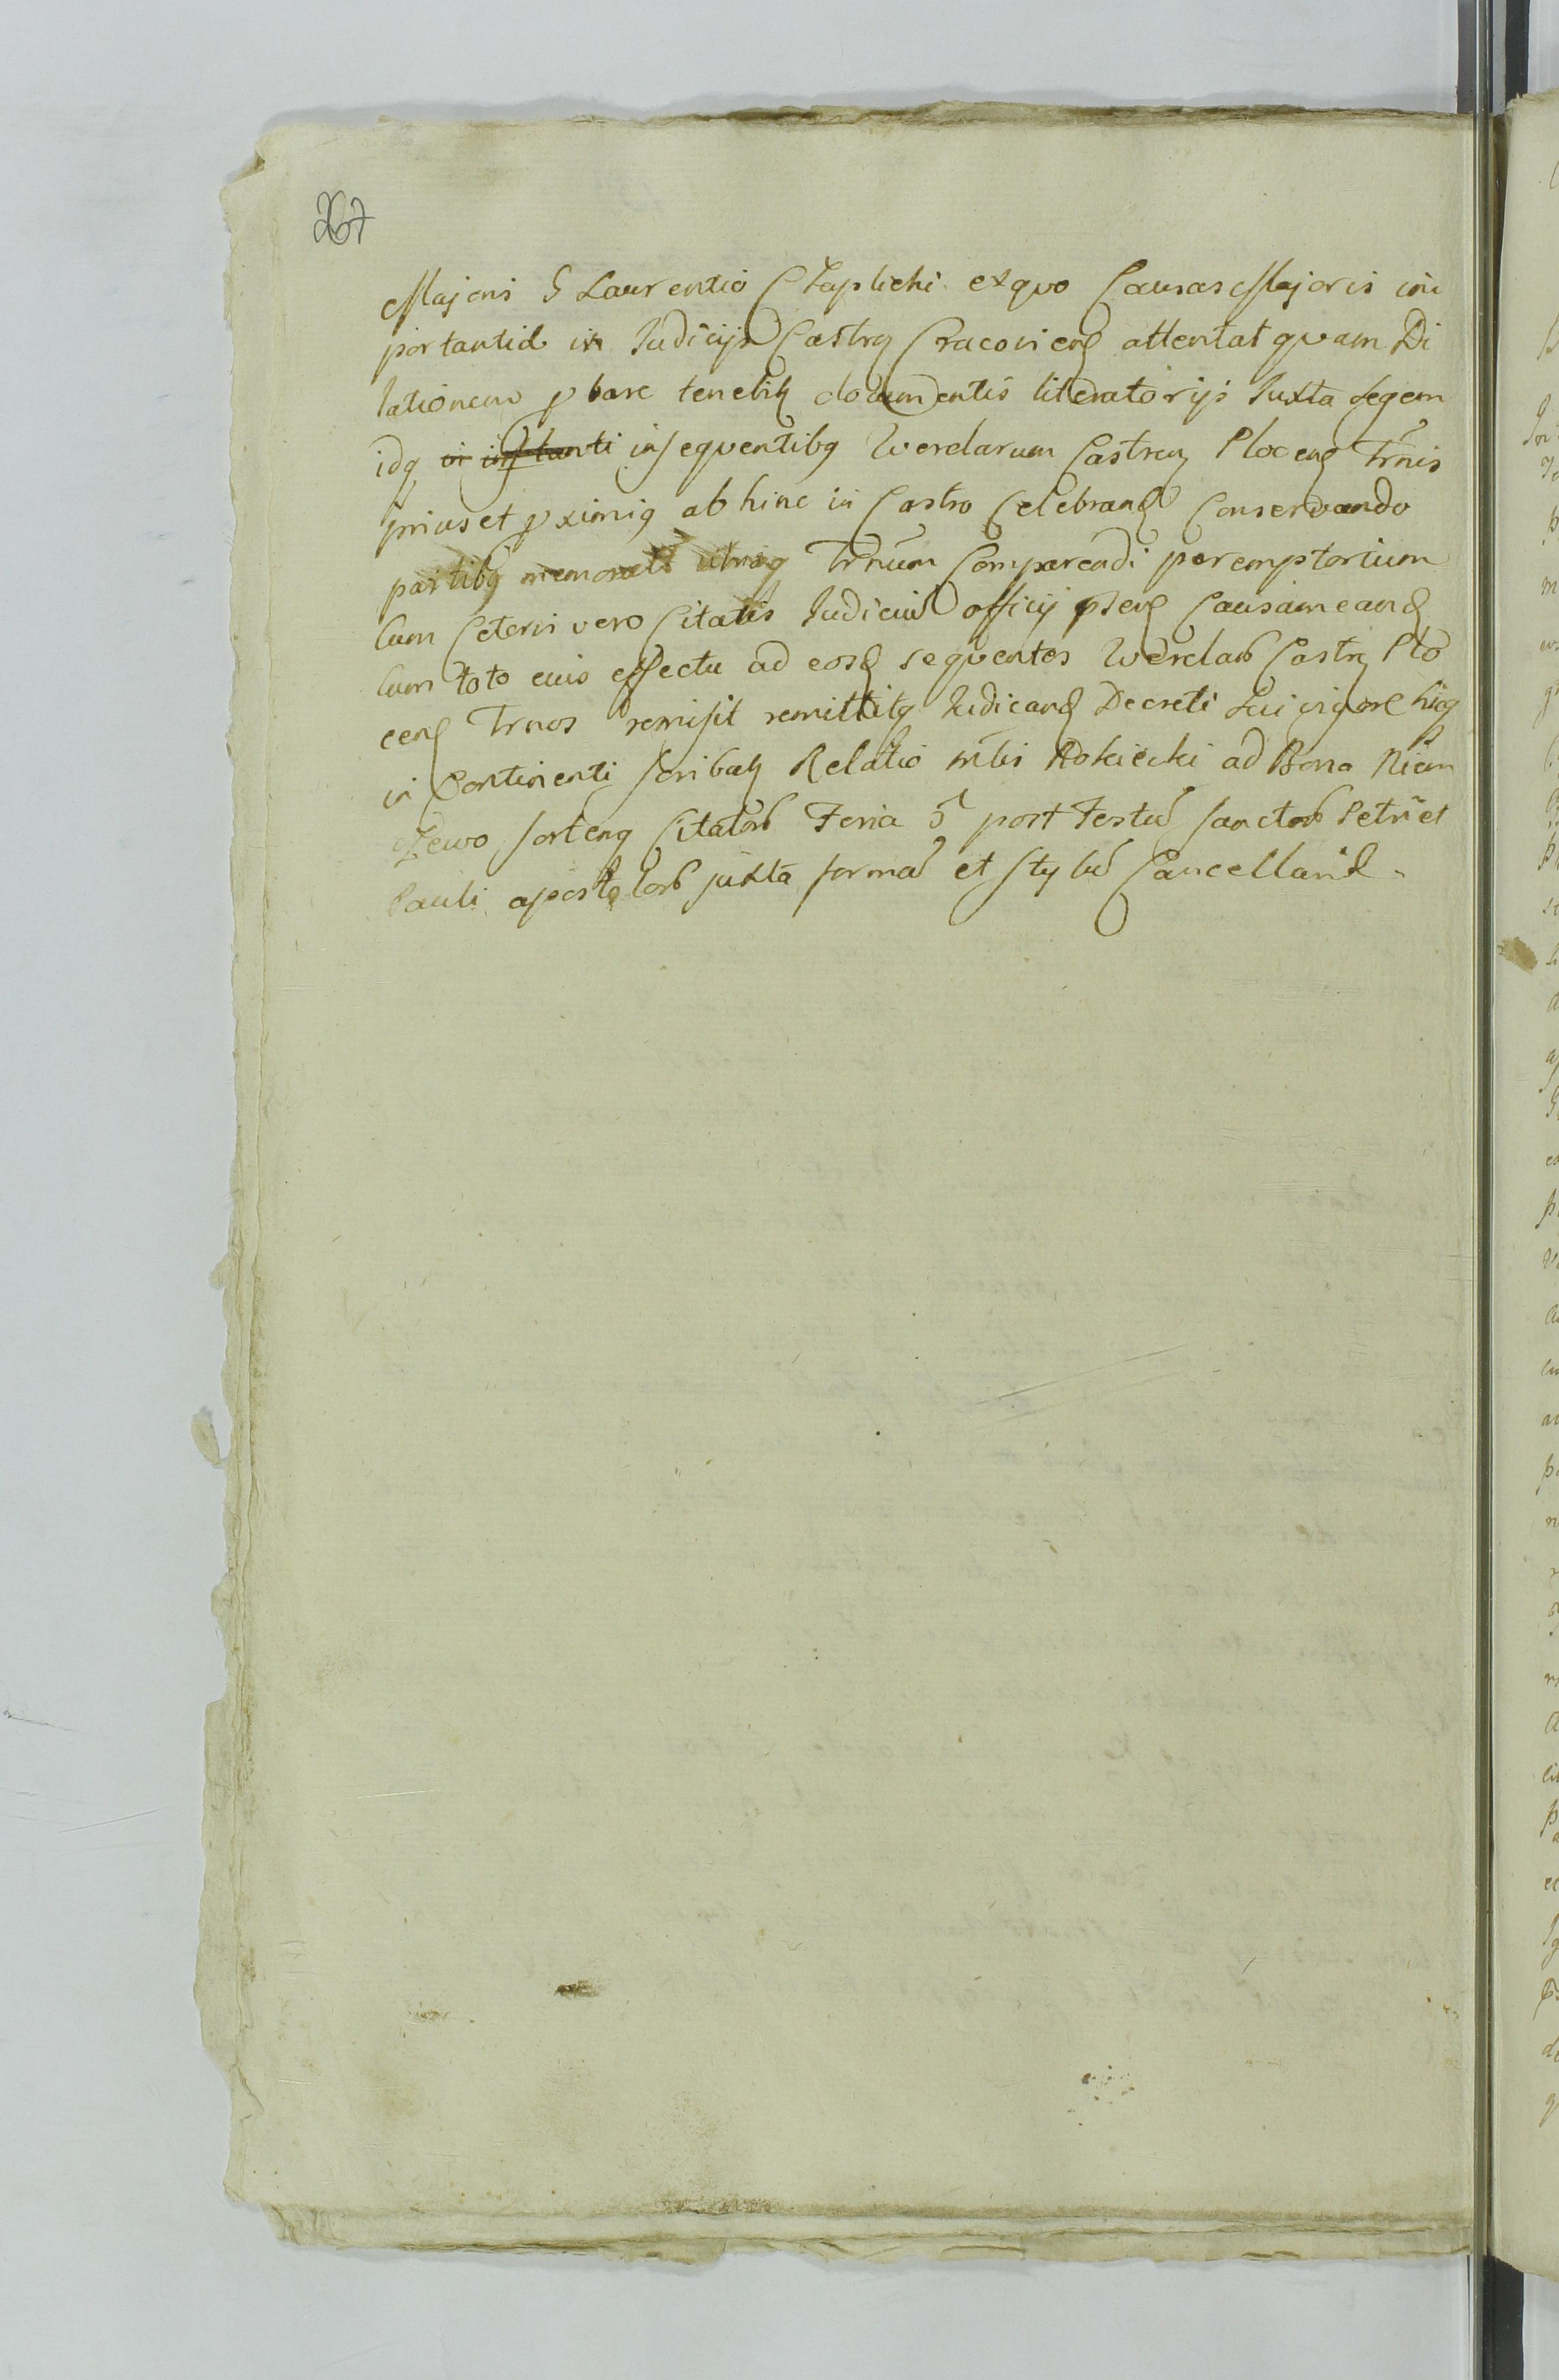 267
Majoris G Laurentio Czaplicki ex quo Causas Majoris im
portantiæ in Judicijs Castren Cracovien attentat quam Di
lationem probare tenebitur documentis literatorijs Juxta Legem
idq in instanti in sequentibq Querelarum Castren Plocen Trnis
prius et proximiq ab hinc in Castro Celebrand Conservando
partibq memoratis utrisq Trnum Comparendi peremptorium
Cum Ceteris vero Citatis Judiciu officij pntis Causam eand
Cum toto eius effectu ad eosd sequentes Querelarum Castren Plo
cen Trnos remisit remittitq Judicand Decreti Sui vigore huiq
in Continenti scribatur Relatio mtlis Rokicki ad Bona Niem
czewo sorteng Citatorum Feria 5ta post Festu Sanctorum Petri et
Pauli apostolorum juxta forma et stylu Cancellariæ